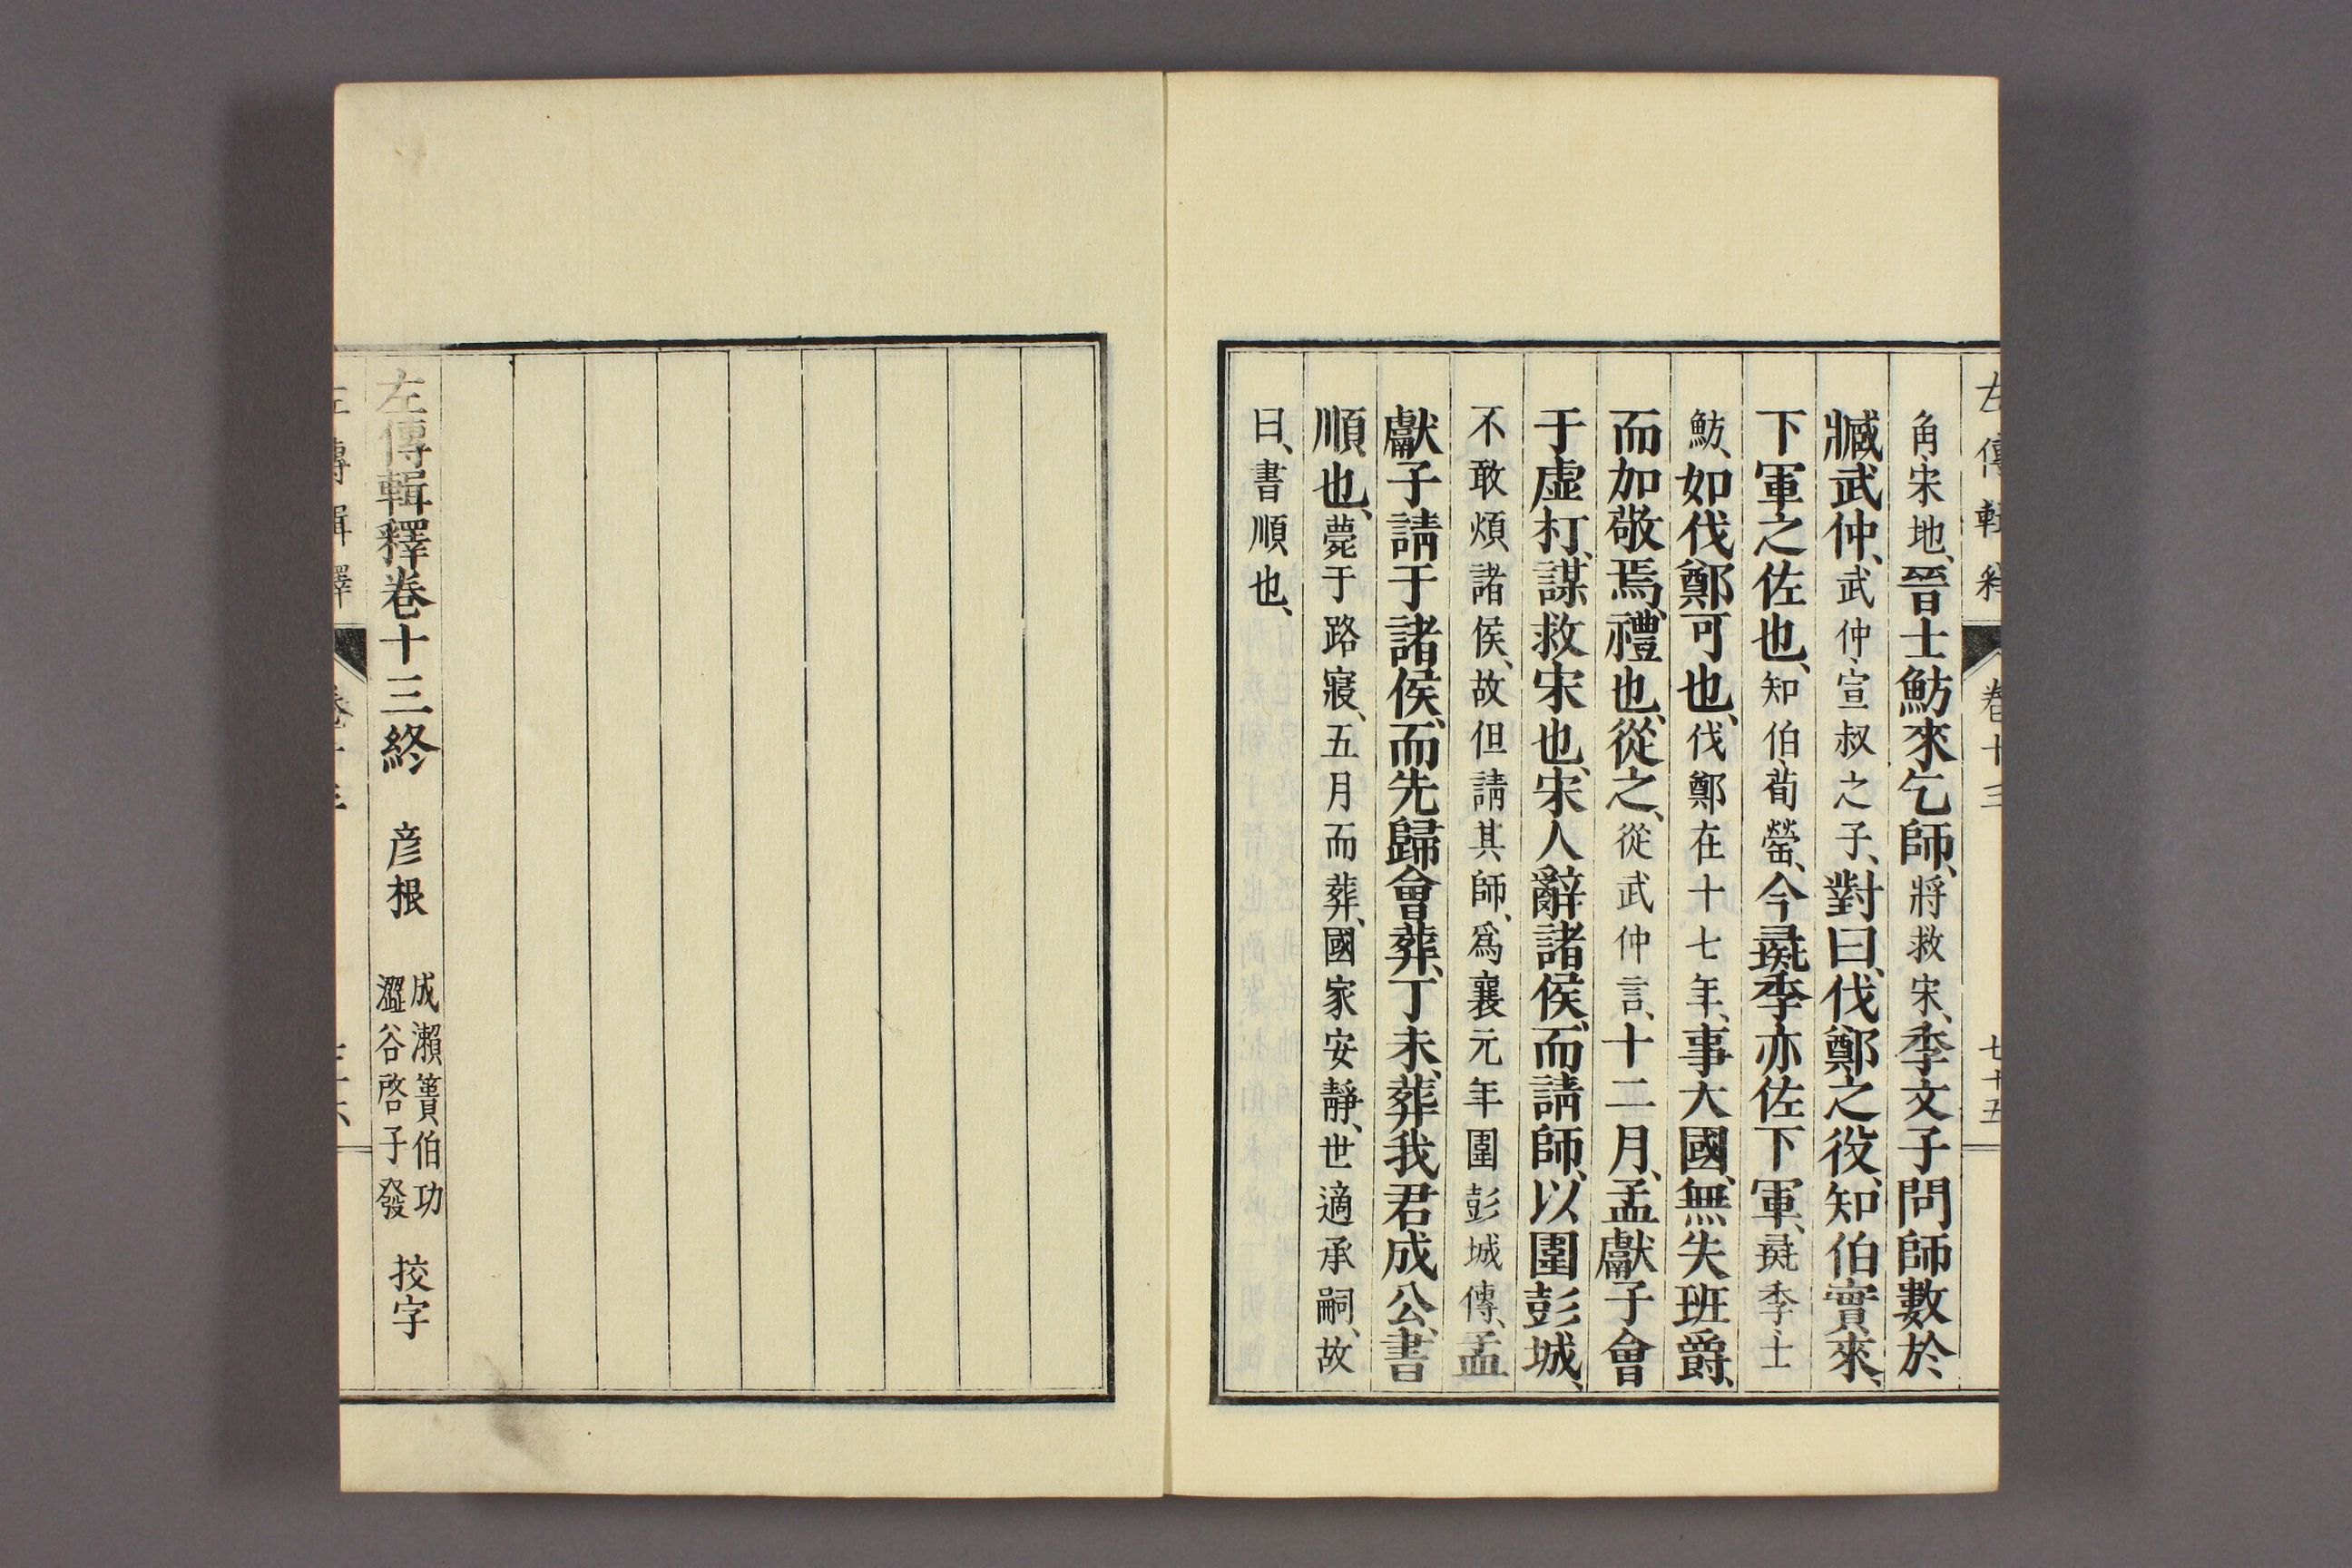 左傳輯釋 卷十三 七十五
角、宋地、晉士魴來乞師、將救宋、季文子問師數於
臧武仲、武仲、宣叔之子、對曰、伐鄭之役、知伯實來、
下軍之佐也、知伯、荀罃、今彘季亦佐下軍、彘季、士
魴、如伐鄭可也、伐鄭在十七年、事大國、無失班爵、
而加敬焉、禮也、從之、從武仲言、十二月、孟獻子會
于虛朾、謀救宋也、宋人辭諸侯、而請師、以圍彭城、
不敢煩諸侯、故但請其師、爲襄元年圍彭城傳、孟
獻子請于諸侯、而先歸會葬、丁未、葬我君成公、書
順也、薨于路寢、五月而葬、國家安靜、世適承嗣、故
曰、書順也、
左傳輯釋卷十三終 彦根 成瀨簣伯功 澀谷啓子發 挍字
左傳輯釋